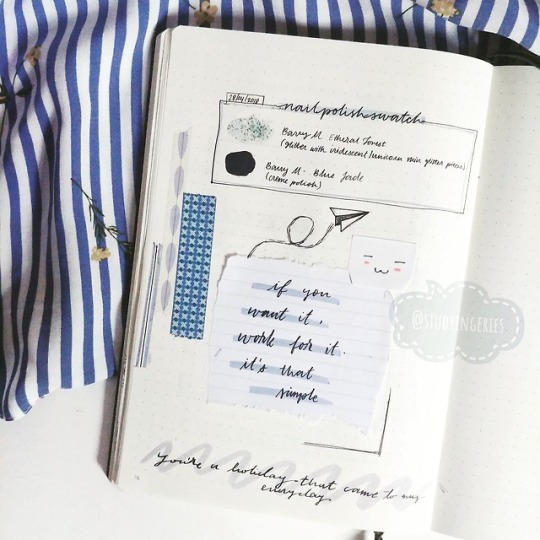 nail polish swatch
Barry M Etheral Forest
(glitter with iridescent/unicorn skin glitter pieces)
Barry M. Blue Jade
(crème polish)
if you
want it,
work for it.
it's that
simple
@STUDYINGERIES
You're a holiday that came to my
everyday